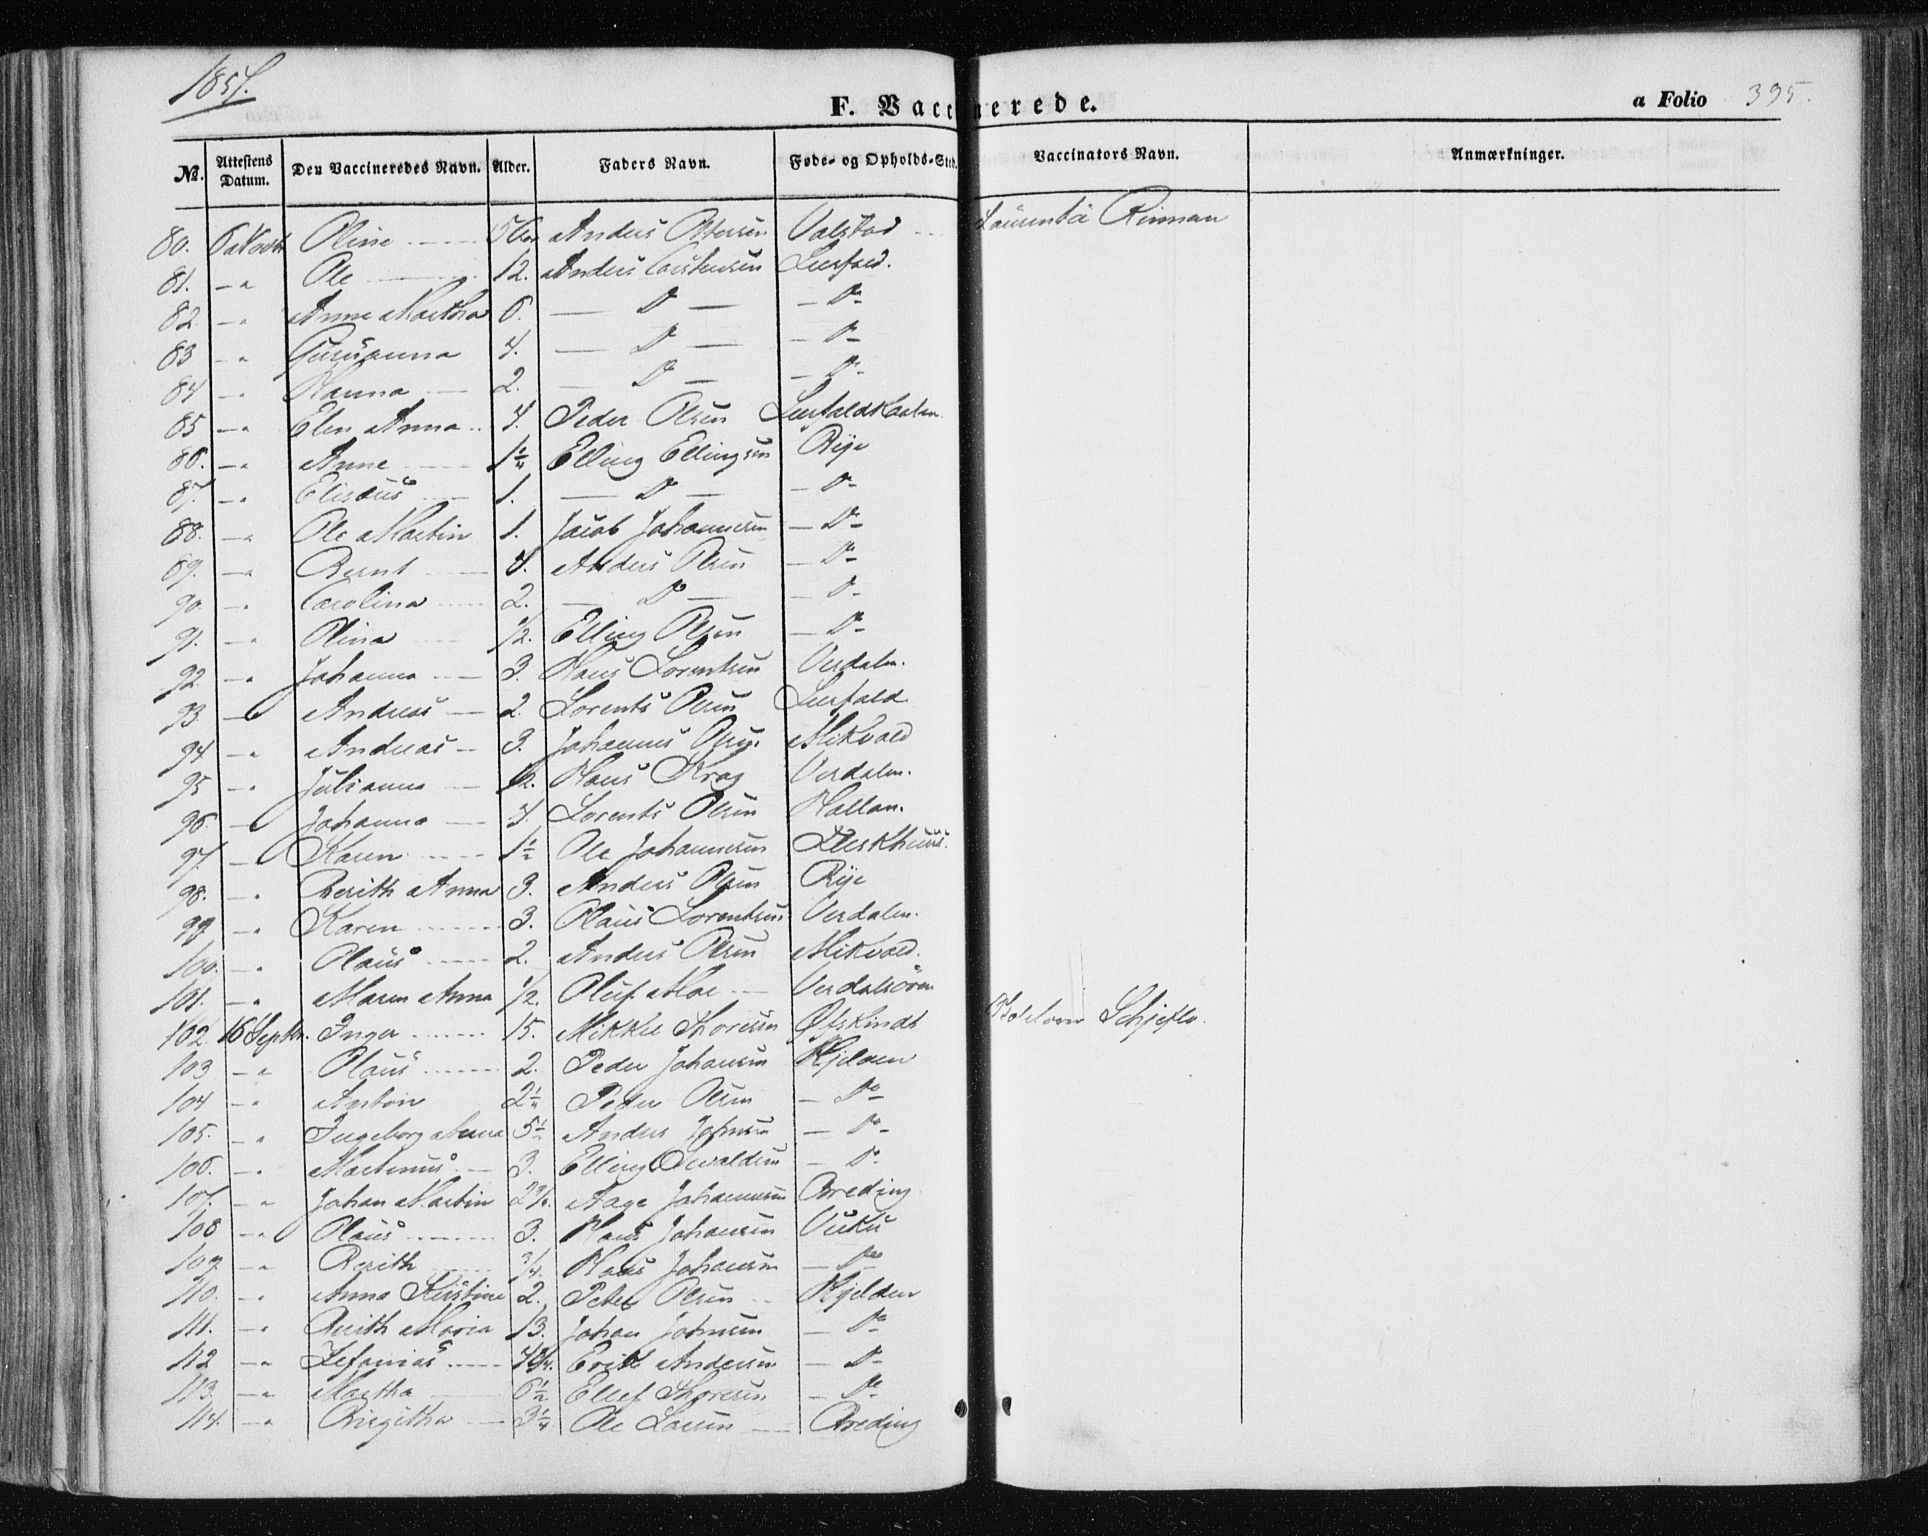 1857.
F. Vaccinerede.
a Folio 395.
No. Attestens Datum. Den Vaccineredes Navn. Alder. Faders Navn. Føde- og Opholds-Sted. Vaccinators Navn. Anmærkninger.
80. Oline Anders Valstad Rinnan
81. - " Ole 12. Anders Leerfald.
82. - " Anne Martha 6. — Do — - Do -
83 - " 4. — Do — - Do -
84 - " Hanna 2. — Do — - Do -
85 - " Elen Anna 4. Peder Olsen
86. - " Anne Elling Ellingsen Rye
87. - " Elisæus 1. — Do — - Do -
88. - " Ole Martin 1. Jacob Johannesen - Do -
89. - " Bernt 4. Anders Olsen - Do -
90. - " Carolina 2. — Do — - Do -
91. - " Olina 1/2. Elling Olsen - Do -
92. - " Johanna 3. Hans Lorentsen Verdalen.
93. - " Andreas 2. Lorents Olsen Leerfald
94. - " Andreas 3. Johannes Olsen Mikvold
95. - " Julianna 1/2. Hans Krag Verdalen.
96. - " Johanna 4. Lorents Olsen Hallan.
97. - " Karen 1 1/2 Ole Johannesen
98. - " Berith Anna 3. Anders Olsen Rye
99. - " Karen 3. Olaus Lorentsen Verdalen.
100. - " Olaus 2. Anders Olsen Mikvold.
101. - " Maren Anna 1/2. Oluf Moe Verdalsøren
102. 16 Septbr. Inger 15. Mikkel Thoresen Øfskind Schjeflo.
103 - " Olaus 2. Peder Johansen Kjelden
104 - " Anton Peder Olsen - Do -
105. - " Ingeborg Anna Anders Johnsen - Do -
106. - " Martinus 3. Elling - Do -
107. - " Johan Martin Aage Johannesen Breding
108 - " Olaus 3. Hans Johansen Vuku
109. - " Berith 3/4. Hans Johansen - Do -
110. - " Anna Kirstine 2. Peter Olsen Kjelden
111. - " Berith Maria 13. Johan Johnsen - Do -
112 - " Zefanias Erik Andersen - Do -
113. - " Martha 6 1/2 Ellef Thoresen - Do -
114. - " Birgitha Ole Larsen Breding